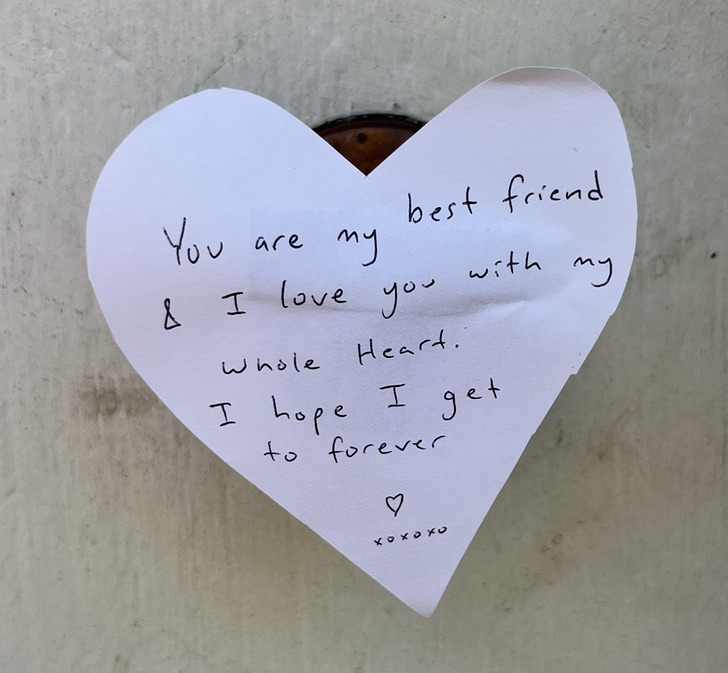 You are my best friend
& I love you with my
whole Heart.
I hope I get
to forever
♡
xoxoxo